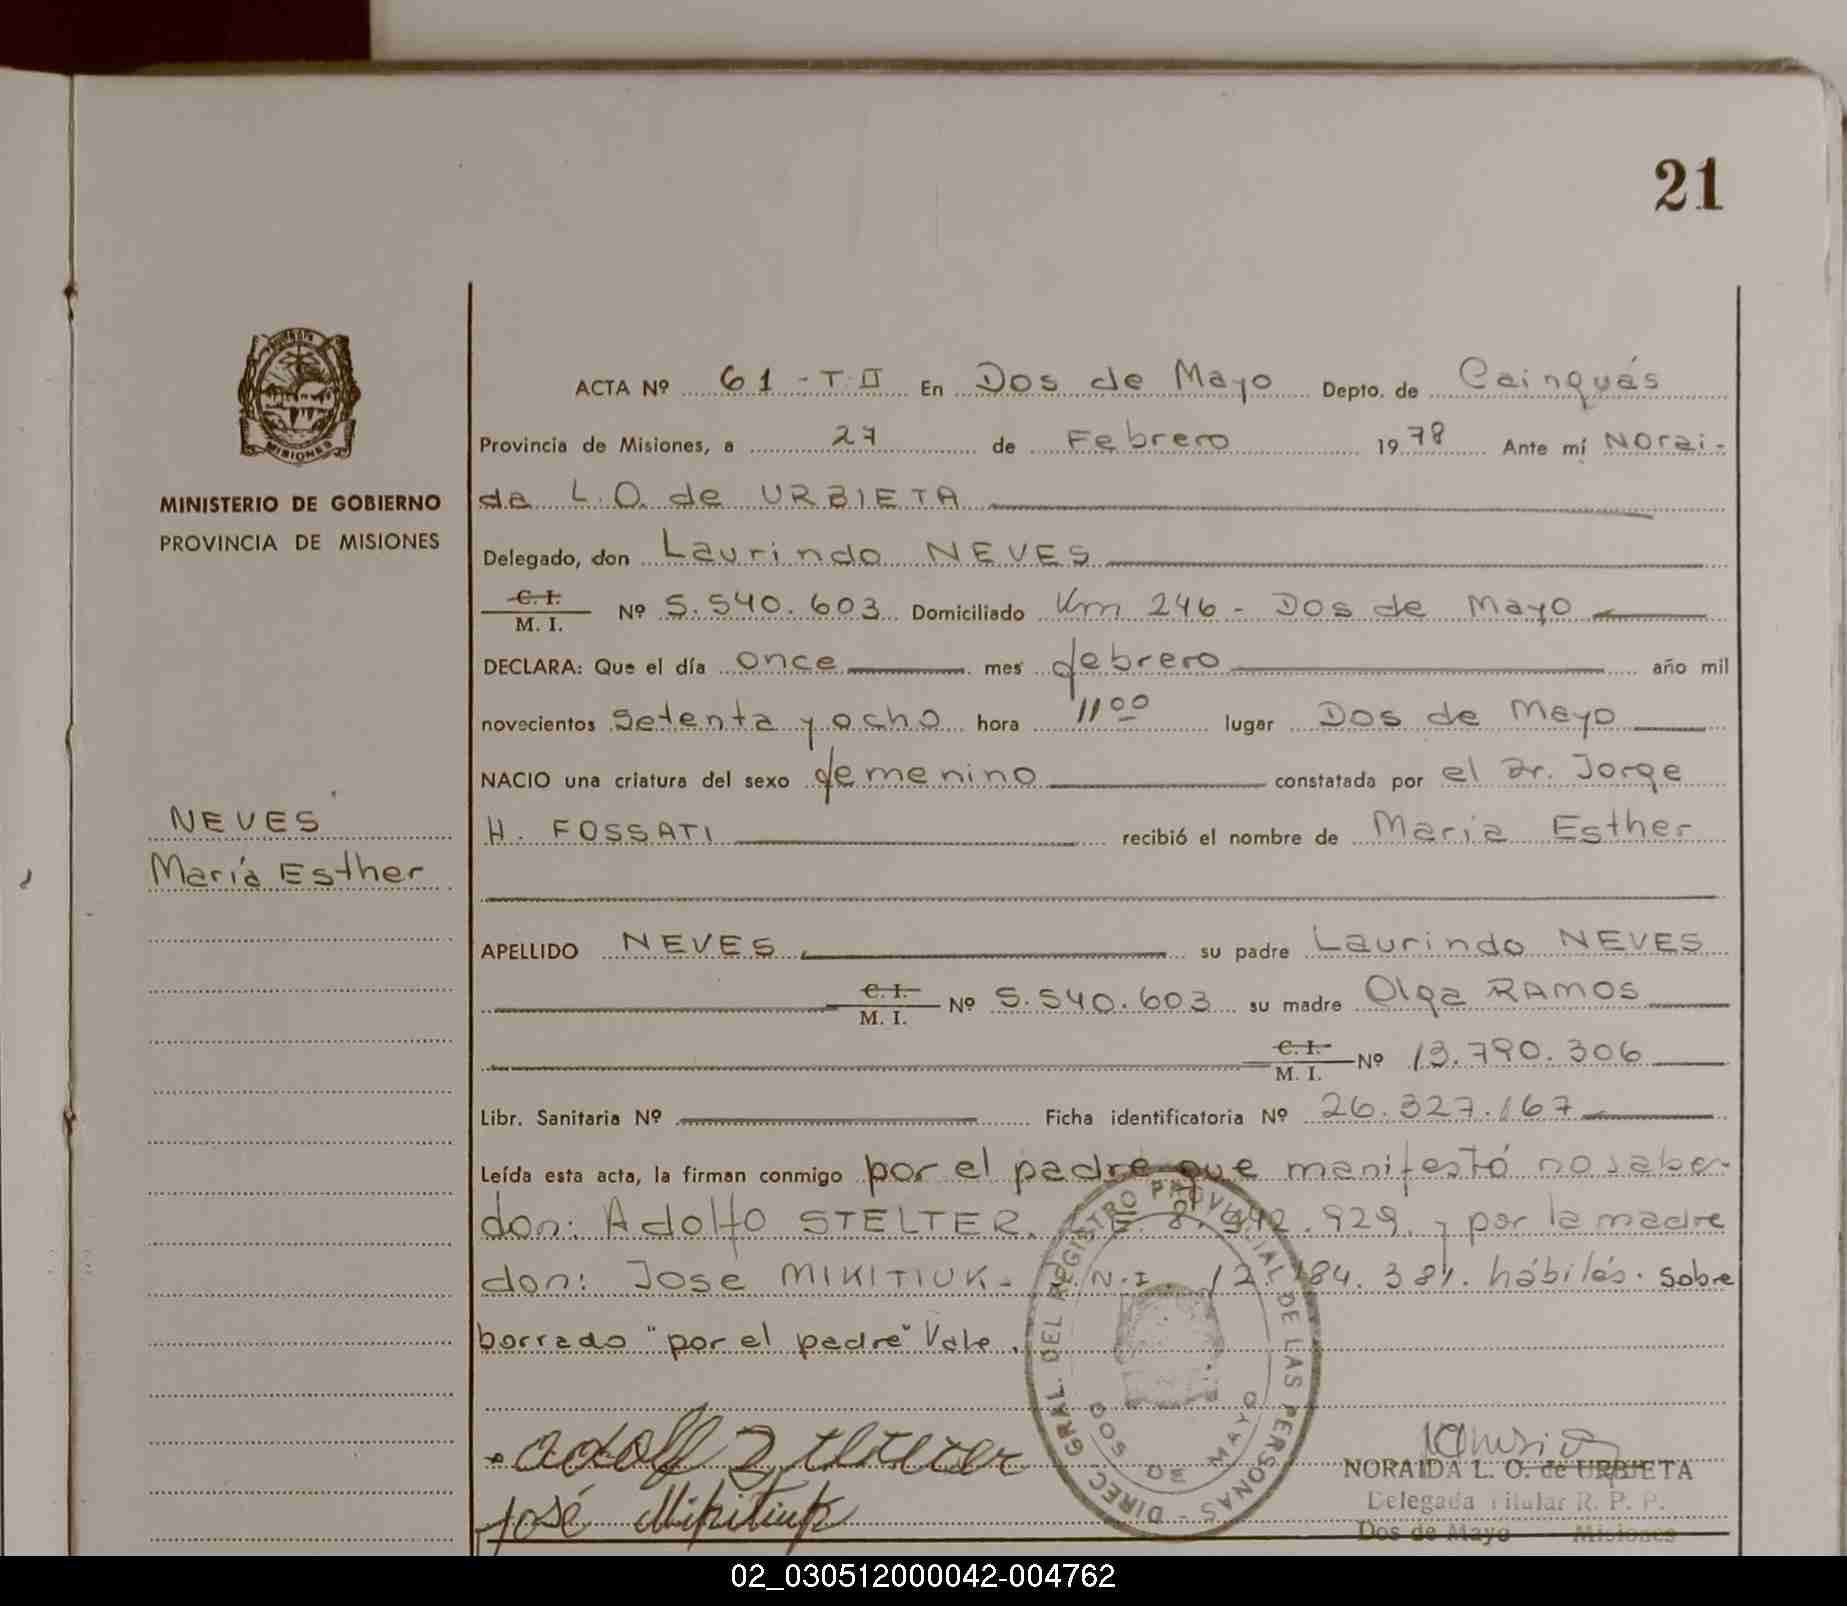 21
ACTA Nº 61 - T. II En Dos de Mayo Depto. de Cainguás
Provincia de Misiones, a 27 de Febrero 1978 Ante mí Norai-
da L. O. de URBIETA
MINISTERIO DE GOBIERNO
PROVINCIA DE MISIONES
Delegado, don Laurindo NEVES
C. I. / M. I. Nº 5.540.603 Domiciliado Km 246 - Dos de Mayo
DECLARA: Que el día once mes febrero año mil
novecientos setenta y ocho hora 11 00 lugar Dos de Mayo
NACIO una criatura del sexo femenino constatada por el Dr. Jorge
H. FOSSATI recibió el nombre de María Esther
NEVES
María Esther
APELLIDO NEVES su padre Laurindo NEVES
C. I. / M. I. Nº 5.540.603 su madre Olga RAMOS
C. I. / M. I. Nº 13.790.306
Libr. Sanitaria Nº Ficha identificatoria Nº 26.327.167
Leída esta acta, la firman conmigo por el padre que manifestó no saber
don: Adolfo STELTER. y por la madre
don: José MIKITIUK - D.N.I. 12.184.381. hábiles. sobre
borrado "por el padre" Vale.
DIREC. GRAL. DEL REGISTRO PROVINCIAL DE LAS PERSONAS - DOS DE MAYO
José Mikitiuk
NORAIDA L. O. de URBIETA
Delegada Titular R. P. P.
Dos de Mayo Misiones
02_030512000042-004762